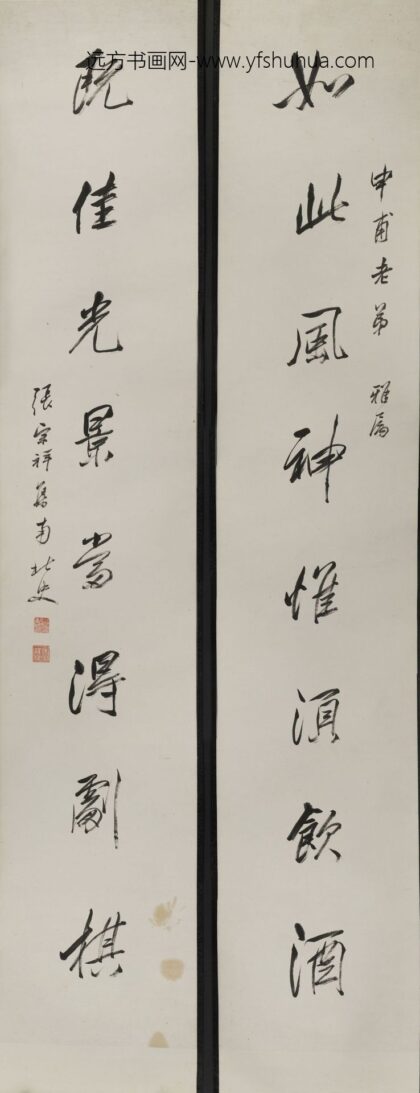 远方书画网-www.yfshuhua.com
申甫老弟 雅属
如此風神惟須飲酒
既佳光景當得劇棋
張宗祥集南北史